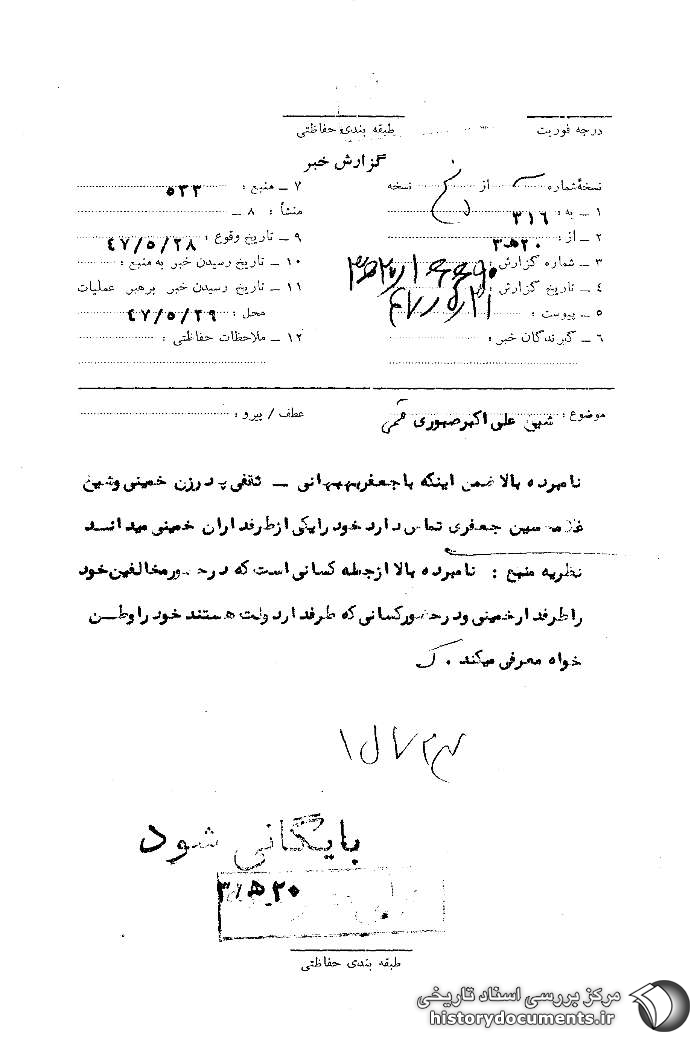 درجه فوریت
طبقه بندی حفاظتی
گزارش خبر
نسخهٔ شماره از نسخه
۱ ــ به: ۳۱۶
۲ ــ از: ۲۰ ه‍ ۳
۳ ــ شماره گزارش:
۴ ــ تاریخ گزارش:
۵ ــ پیوست:
۶ ــ گیرندگان خبر:
۷ ــ منبع: ۵۳۳
منشأ: ۸ ــ
۹ ــ تاریخ وقوع: ۴۷/۵/۲۸
۱۰ ــ تاریخ رسیدن خبر به منبع:
۱۱ ــ تاریخ رسیدن خبر برهبر عملیات
محل: ۴۷/۵/۲۹
۱۲ ــ ملاحظات حفاظتی:
موضوع: شیخ علی اکبر صبوری قمی
عطف / پیرو:
نامبرده بالا ضمن اینکه با جعفر بهبهانی ــ ثقفی پدرزن خمینی و شیخ
غلامحسین جعفری تماس دارد خود را یکی از طرفداران خمینی میداند
نظریه منبع: نامبرده بالا از جمله کسانی است که در حضور مخالفین خود
را طرفدار خمینی و در حضور کسانی که طرفدار دولت هستند خود را وطن
خواه معرفی میکند.
بایگانی شود
۲۰ ه‍ ۳
طبقه بندی حفاظتی
مرکز بررسی اسناد تاریخی
historydocuments.ir